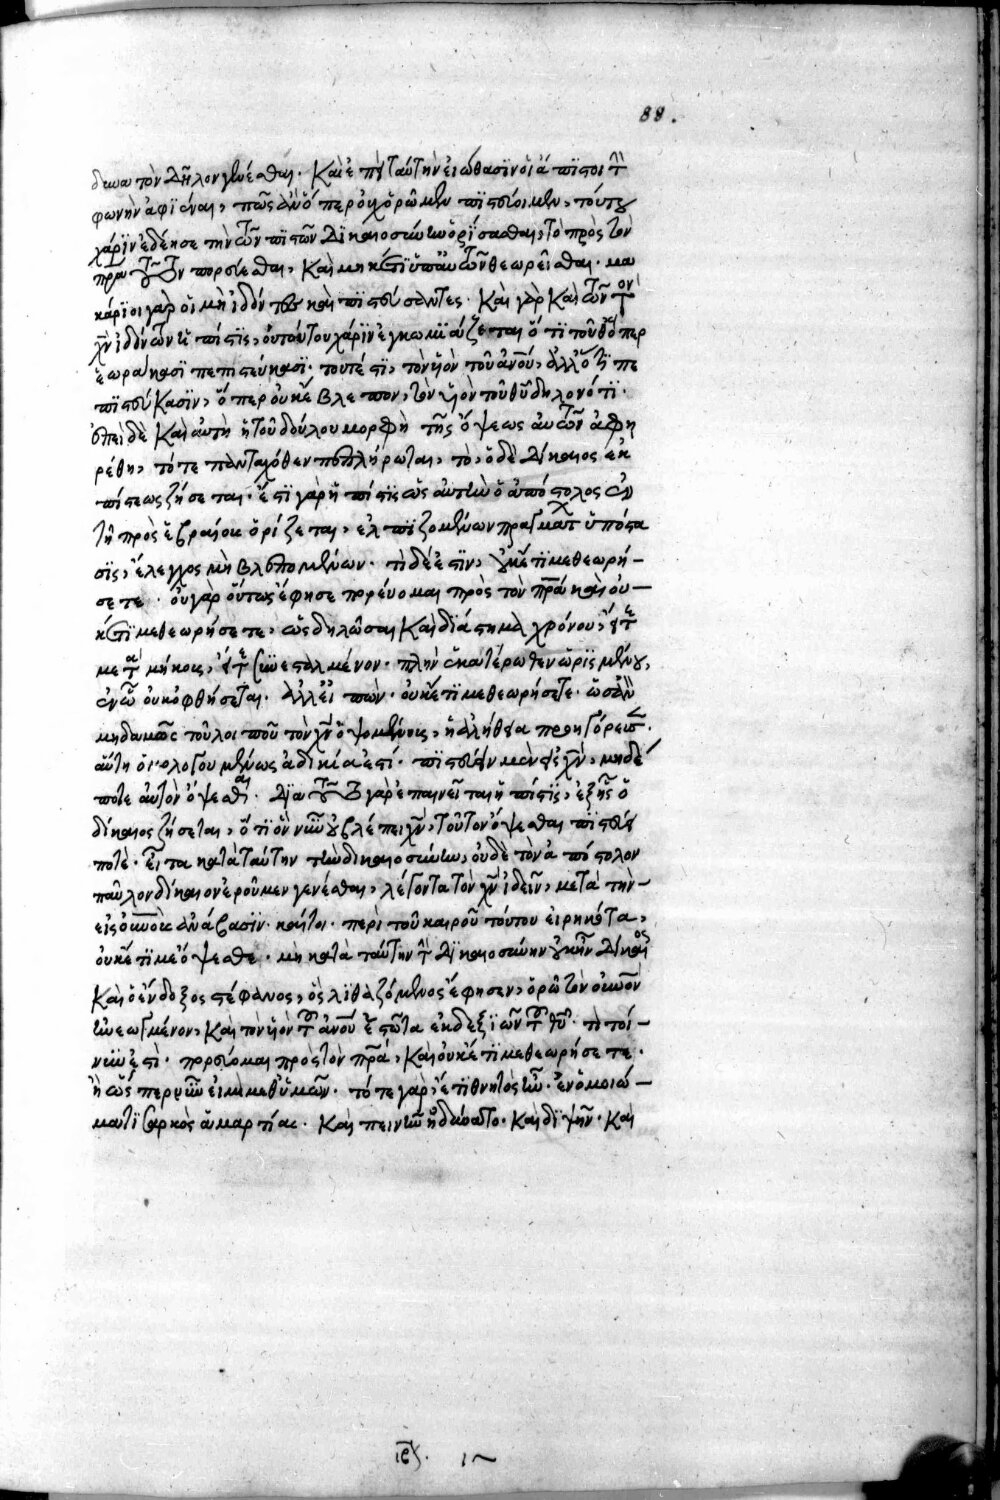 88.
τὸν δῆλον γενέσθαι. Καὶ ἐπὶ ταύτην εἰώθασιν οἱ ἄπιστοι τὴν
φωνὴν ἀφιέναι, πῶς ἂν ὅπερ οὐχ ὁρῶμεν πιστεύοιμεν, τούτου
χάριν ἐδέησε τὴν τῶν πιστῶν δικαιοσύνην ὁρίσασθαι, τὸ πρὸς τὸν
πρα πορεύεσθαι, Καὶ μηκέτι ὑπ' αὐτῶν θεωρεῖσθαι. μα
κάριοι γὰρ οἱ μὴ ἰδόντες καὶ πιστεύσαντες. Καὶ γὰρ Καὶ τῶν τὸν
χν ἰδόντων ἡ πίστις, οὐ τούτου χάριν ἐγκωμιάζεται ὅτι τοῦθ' ὅπερ
ἑωράκασι πεπιστεύκασι. τουτέστι, τὸν υἱὸν τοῦ ἀνου, ἀλλ' ὅτι πε
πιστεύκασιν, ὅπερ οὐκ ἔβλεπον, τὸν υἱὸν τοῦ θυ δηλονότι.
ἐπεὶ δὲ Καὶ αὐτὴ ἡ τοῦ δούλου μορφὴ τῆς ὄψεως αὐτῶν ἀφῃ
ρέθη, τότε πανταχόθεν πεπλήρωται, τὸ, ὁ δὲ δίκαιος ἐκ
πίστεως ζήσεται. ἔστι γὰρ ἡ πίστις ὡς αὐτὴν ὁ ἀπόστολος ἐν
τῇ πρὸς ἑβραίους ὁρίζεται, ἐλπιζομένων πραγμάτων ὑπόστα
σις, ἔλεγχος μὴ βλεπομένων. τί δέ ἐστιν, οὐκέτι με θεωρή-
σετε. οὐ γὰρ οὕτως ἔφησε πορεύομαι πρὸς τὸν πρα καὶ οὐ-
κέτι με θεωρήσετε, ὡς δηλῶσαι Καὶ διάστημα χρόνου, εἴτε
μετὰ μήκους, εἴτε συνεσταλμένον. πλὴν ἑκατέρωθεν ὡρισμένου,
ἐν ᾧ οὐκ ὀφθήσεται. ἀλλ' εἰπών. οὐκέτι με θεωρήσετε. ὡσὰν
μηδαμῶς τοῦ λοιποῦ τὸν χν ὀψομένοις, ἡ ἀλήθεια προηγόρευσεν.
αὕτη ὁμολογουμένως ἀδικία ἐστί. πιστεύειν μὲν εἰς χν, μηδέ
ποτε αὐτὸν ὄψεσθαι. διὰ τοῦτο γὰρ ἐπαινεῖται ἡ πίστις, ἐξ ἧς ὁ
δίκαιος ζήσεται, ὅτι ὃν νῦν οὐ βλέπει χν, τοῦτον ὄψεσθαι πιστεύει
ποτέ. Εἶτα κατὰ ταύτην τὴν δικαιοσύνην, οὐδὲ τὸν ἀπόστολον
παῦλον δίκαιον ἐροῦμεν γενέσθαι, λέγοντα τὸν χν ἰδεῖν, μετὰ τὴν-
εἰς οὐνοὺς ἀνάβασιν. καίτοι. περὶ τοῦ καιροῦ τούτου εἰρηκότα,
οὐκέτι με ὄψεσθε. μὴ κατὰ ταύτην τὴν δικαιοσύνην οὐκ ἦν δίκαιος
Καὶ ὁ ἔνδοξος στέφανος, ὃς λιθαζόμενος ἔφησεν, ὁρῶ τὸν οὐνον
ἠνεωγμένον, Καὶ τὸν υἱὸν τοῦ ἀνου ἑστῶτα ἐκ δεξιῶν τοῦ θυ. τί τοί-
νυν ἐστί. πορεύομαι πρὸς τὸν πρα, Καὶ οὐκέτι με θεωρήσετε.
ἢ ὥσπερ νῦν εἰμι μεθ' ὑμῶν. τότε γὰρ, ἔτι θνητὸς ἦν. ἐν ὁμοιώ-
ματι σαρκὸς ἁμαρτίας. Καὶ πεινῆν ἠδύνατο. Καὶ διψῆν. Καὶ